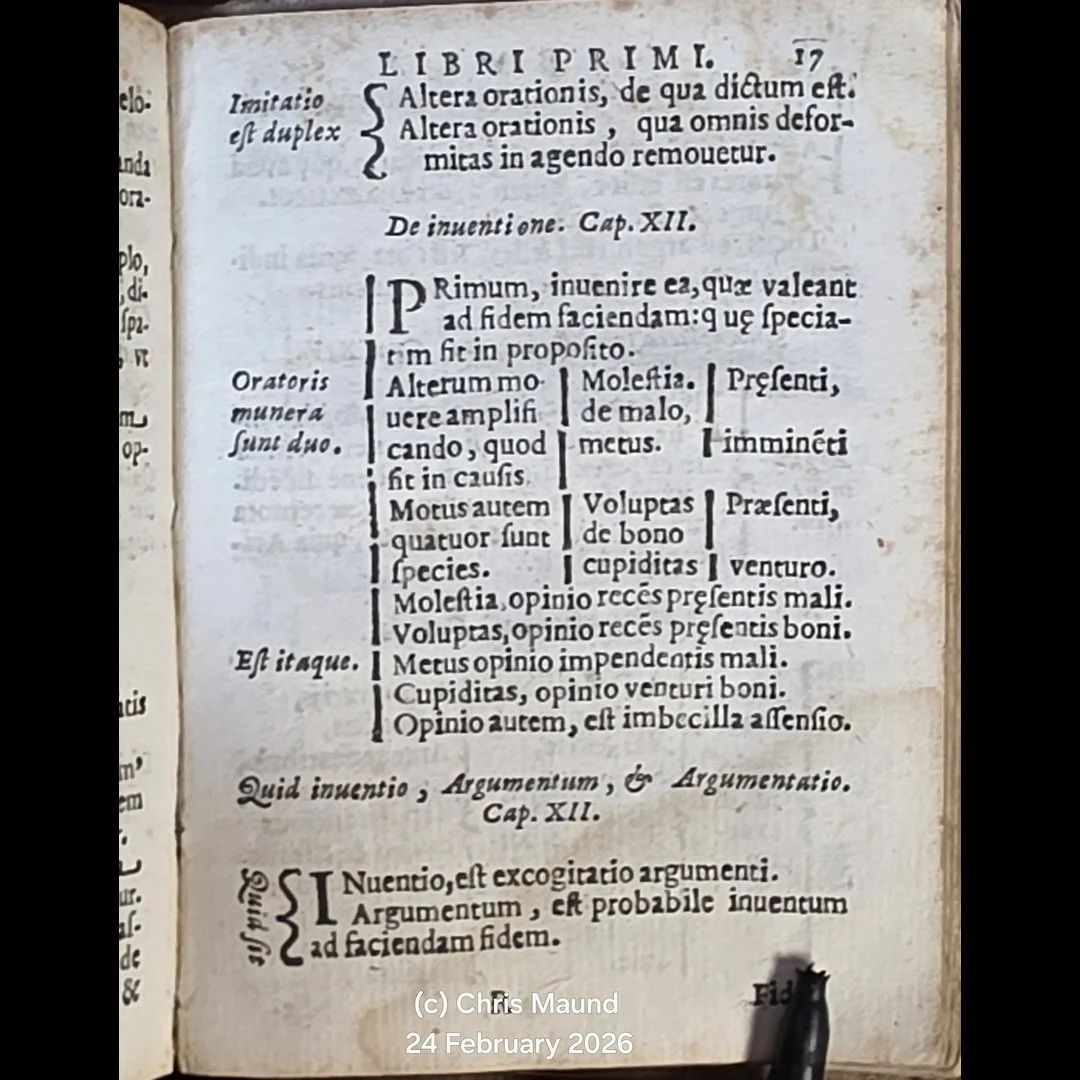 LIBRI PRIMI. 17
Imitatio
est duplex
Altera orationis, de qua dictum est.
Altera orationis, qua omnis defor-
mitas in agendo remouetur.
De inuentione. Cap. XII.
PRimum, inuenire ea, quæ valeant
ad fidem faciendam: q uę specia-
tim fit in proposito.
Oratoris
munera
sunt duo.
Alterum mo-
uere amplifi
cando, quod
fit in causis.
Motus autem
quatuor sunt
species.
Molestia.
de malo,
metus.
Voluptas
de bono
cupiditas
Pręsenti,
imminēti
Præsenti,
venturo.
Est itaque.
Molestia, opinio recēs pręsentis mali.
Voluptas, opinio recēs pręsentis boni.
Metus opinio impendentis mali.
Cupiditas, opinio venturi boni.
Opinio autem, est imbecilla assensio.
Quid inuentio, Argumentum, & Argumentatio.
Cap. XII.
Quid sit
INuentio, est excogitatio argumenti.
Argumentum, est probabile inuentum
ad faciendam fidem.
elo-
anda
ora-
plo,
di-
spa-
vt
op-
em
ur.
de
&
(c) Chris Maund
24 February 2026